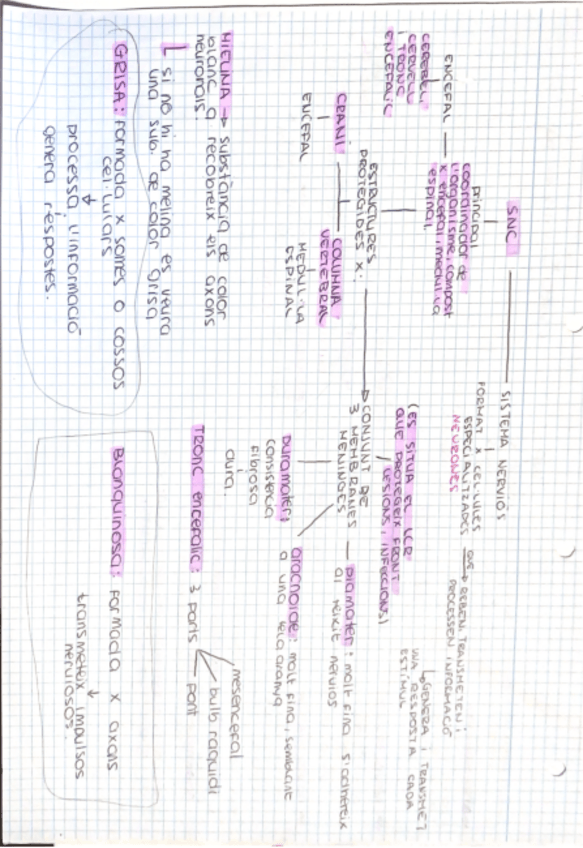 SISTEMA NERVIÓS
FORMAT X CEL·LULES
ESPECIALITZADES que → REBEN TRANSMETEN i
NEURONES
PROCESSEN INFORMACIÓ
GENERA I TRANSMET
UNA RESPOSTA CADA
ESTÍMUL
SNC
principal
coordinador de
l'organisme, compost
x encefal i medul·la
espinal.
ENCEFAL
CEREBEL,
CERVELL
I TRONC
ENCEFALIC
(ES SITUA EL LCR
QUE PROTEGEIX FRONT
LESIONS, INFECCIONS)
ESTRUCTURES
PROTEGIDES X:
CONJUNT DE
3 MEMBRANES
MENINGES
CRANI
ENCEFAL
COLUMNA
VERTEBRAL
MEDUL·LA
ESPINAL
piamater: molt fina s'adhereix
al teixit nerviós
aracnoide: molt fina, semblant
a una tela aranya
Duramater:
consistència
fibrosa
dura.
MIELINA → substància de color
blanc q recobreix els axons
neuronals.
si no hi ha melina es veura
una sub. de color grisa
Tronc encefalic: 3 parts
mesencefal
bulb raquidi
pont
GRISA: Formada x somes o cossos
cel·lulars
processa l'informació
genera respostes.
Blanquinosa: Formada x axons
transmeteix impulsos
nerviosos